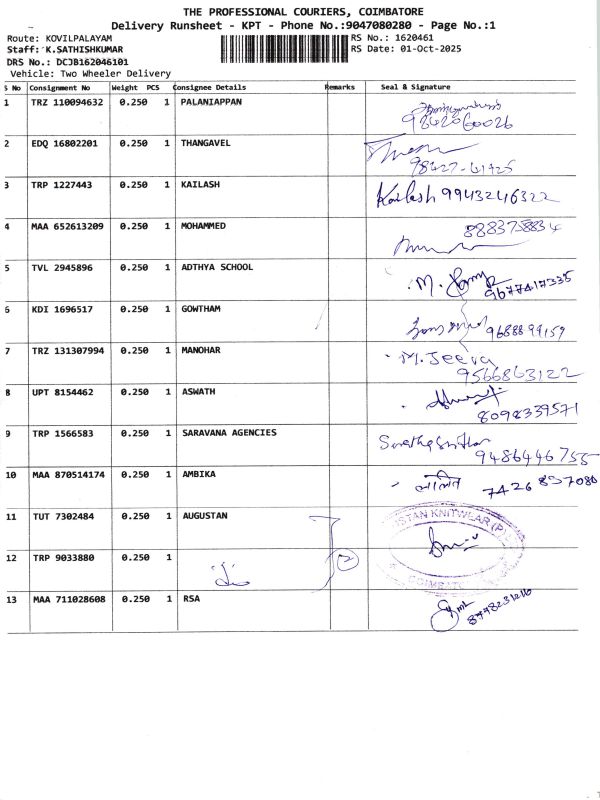 THE PROFESSIONAL COURIERS, COIMBATORE
Delivery Runsheet - KPT - Phone No.:9047080280 - Page No.:1
Route: KOVILPALAYAM
RS No.: 1620461
Staff: K.SATHISHKUMAR
RS Date: 01-Oct-2025
DRS No.: DCJB162046101
Vehicle: Two Wheeler Delivery
S No Consignment No Weight PCS Consignee Details Remarks Seal & Signature
1 TRZ 110094632 0.250 1 PALANIAPPAN
9842060026
2 EDQ 16802201 0.250 1 THANGAVEL
98427-61425
3 TRP 1227443 0.250 1 KAILASH Kailash 9943246322
4 MAA 652613209 0.250 1 MOHAMMED 8883758834
5 TVL 2945896 0.250 1 ADTHYA SCHOOL M.
9677417335
6 KDI 1696517 0.250 1 GOWTHAM
9688899159
7 TRZ 131307994 0.250 1 MANOHAR M.Jeeva
9566863122
8 UPT 8154462 0.250 1 ASWATH
8098339571
9 TRP 1566583 0.250 1 SARAVANA AGENCIES
9486446755
10 MAA 870514174 0.250 1 AMBIKA 7426897080
11 TUT 7302484 0.250 1 AUGUSTAN KNITWEAR (P)
12 TRP 9033880 0.250 1 2
13 MAA 711028608 0.250 1 RSA 8778231216